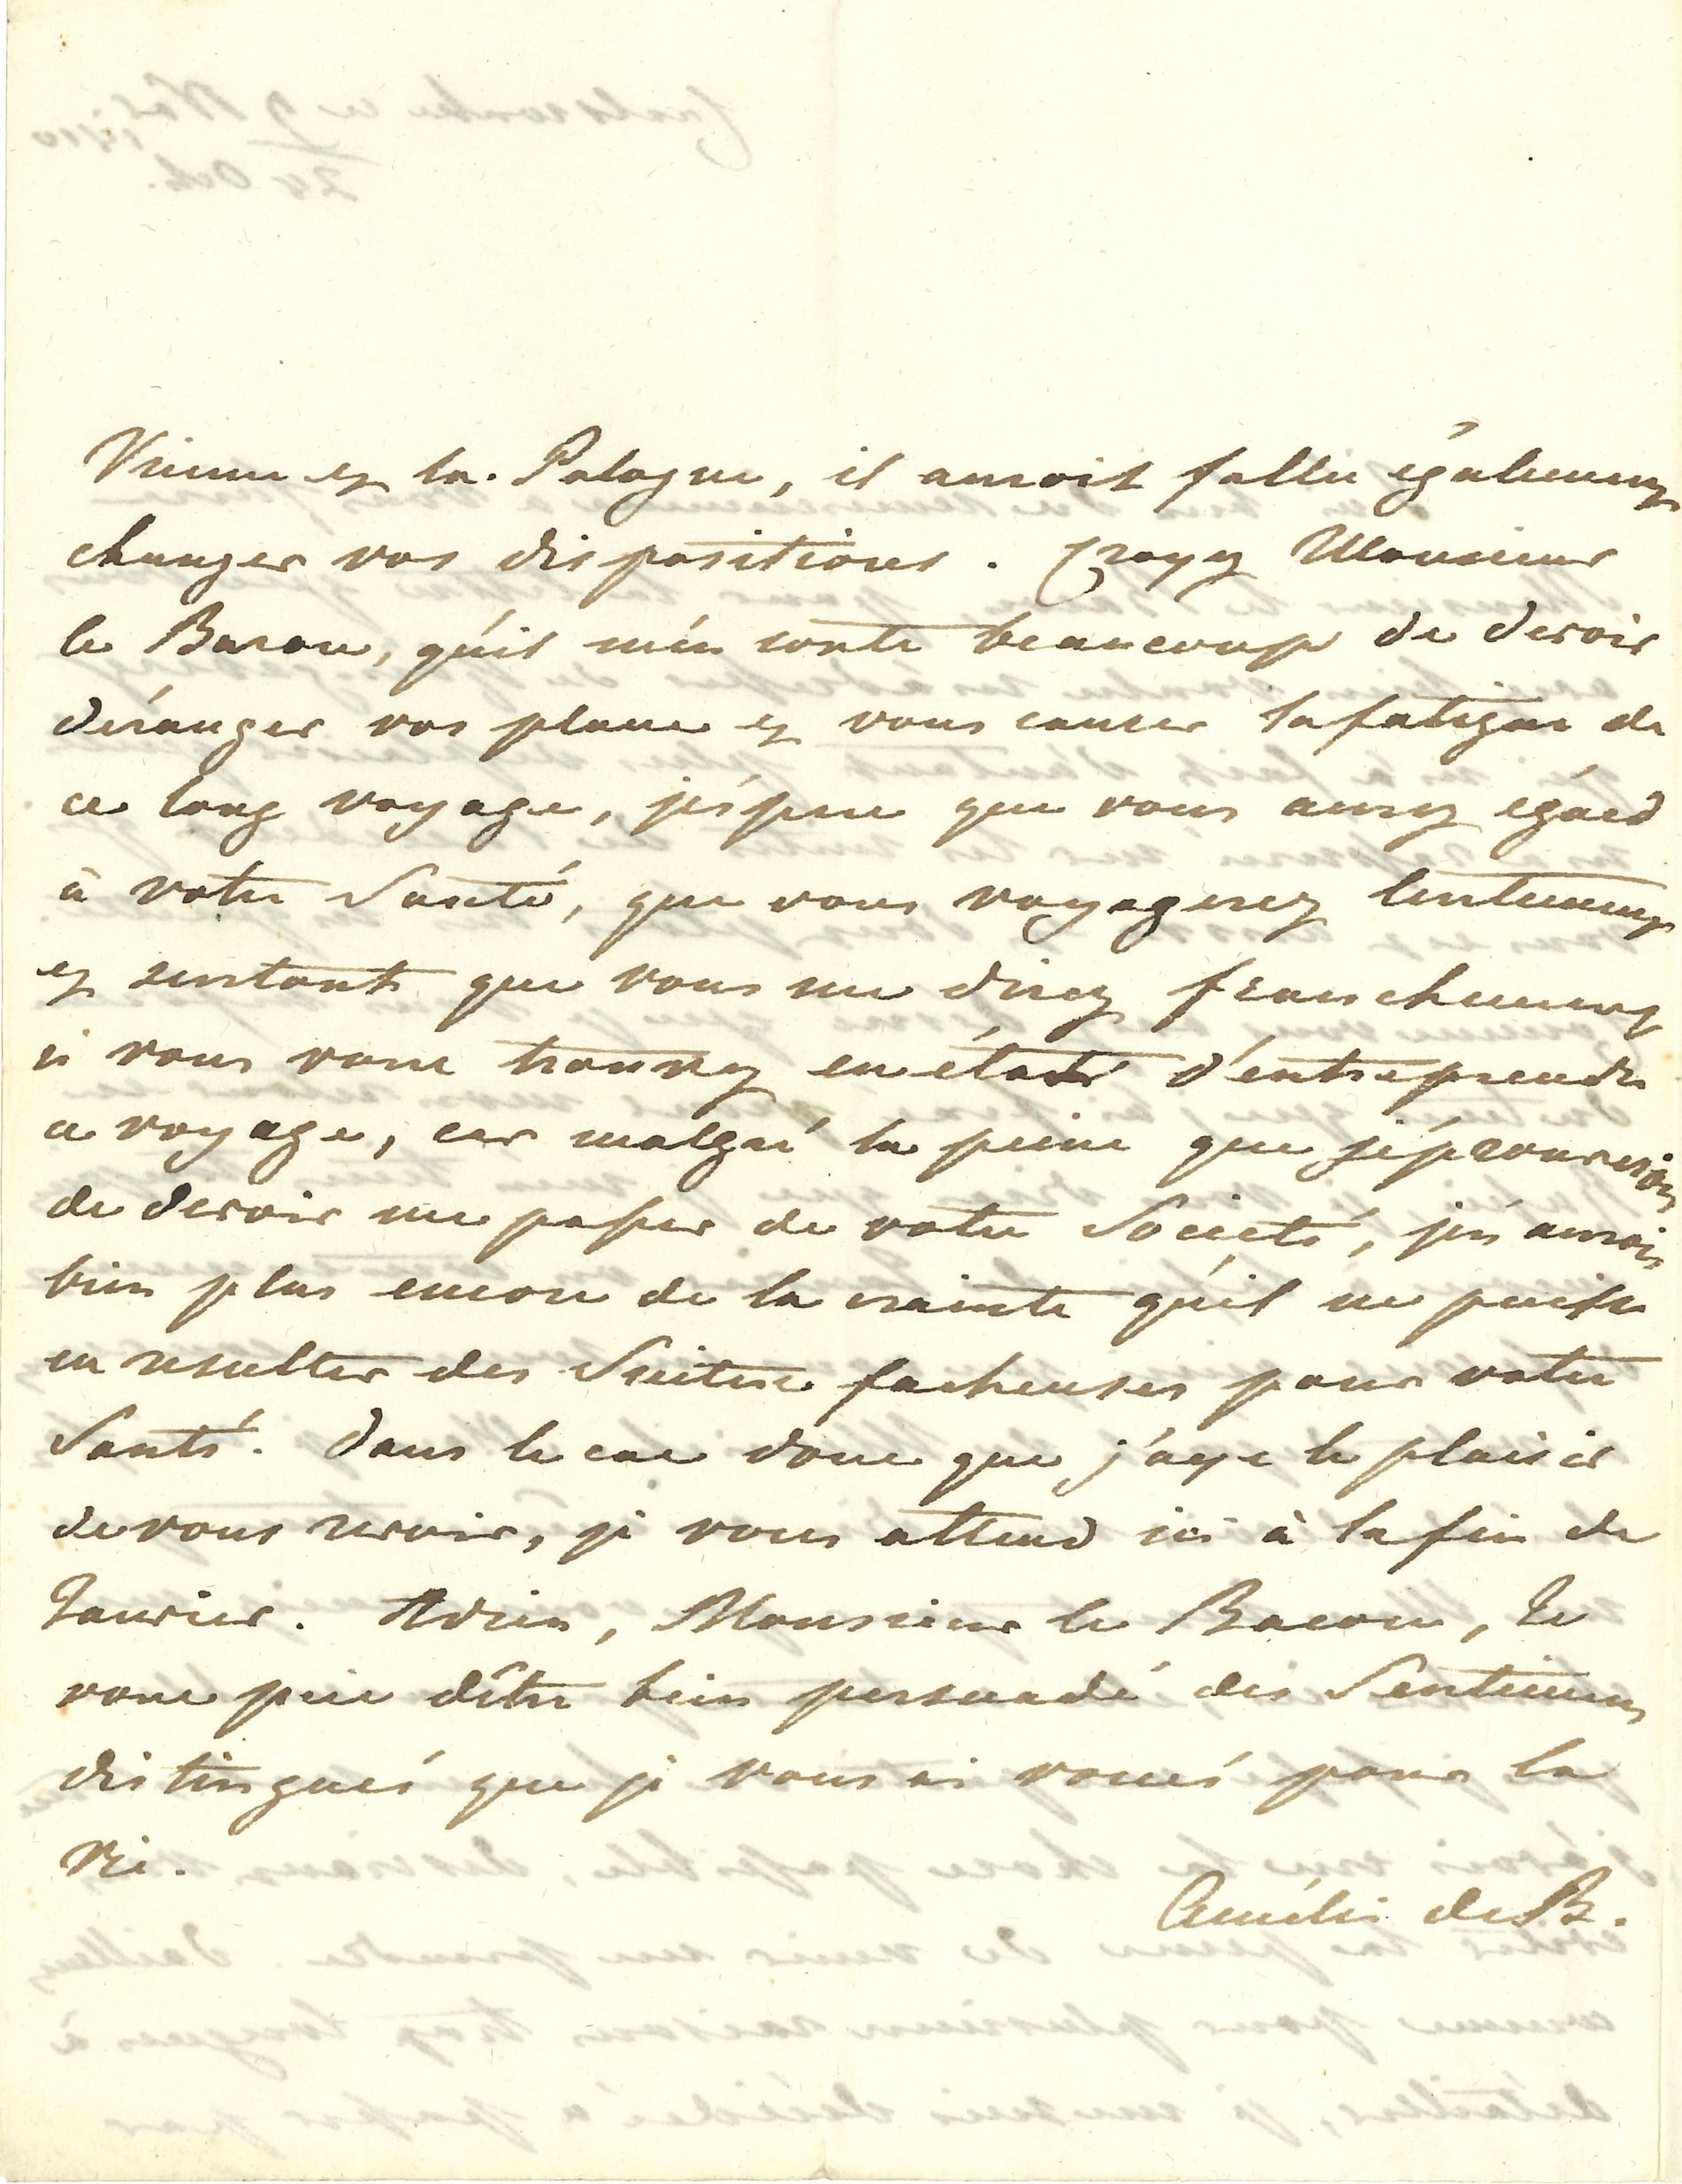 Vienne et la Pologne, il auroit fallu également
changer vos dispositions. Croyez Monsieur
le Baron, qu'il m'en coute beaucoup de devoir
déranger vos plans et vous causer la fatigue de
ce long voyage, j'éspere que vous aurez égard
à votre Santé, que vous voyagerez lentement
et surtout que vous me direz franchement
si vous vous trouvez en état d'entreprendre
ce voyage, car malgré la peine que j'éprouverois
de devoir me passer de votre Societé, j'en aurois
bien plus encore de la crainte qu'il ne puisse
en resulter des Suites facheuses pour votre
Santé. Dans le cas donc que j'aye le plaisir
de vous revoir, je vous attend ici à la fin de
Janvier. Adieu, Monsieur le Baron, Je
vous prie d'être bien persuadé des Sentimens
distingués que je vous ai voués pour la
vie.
Amélie de B.